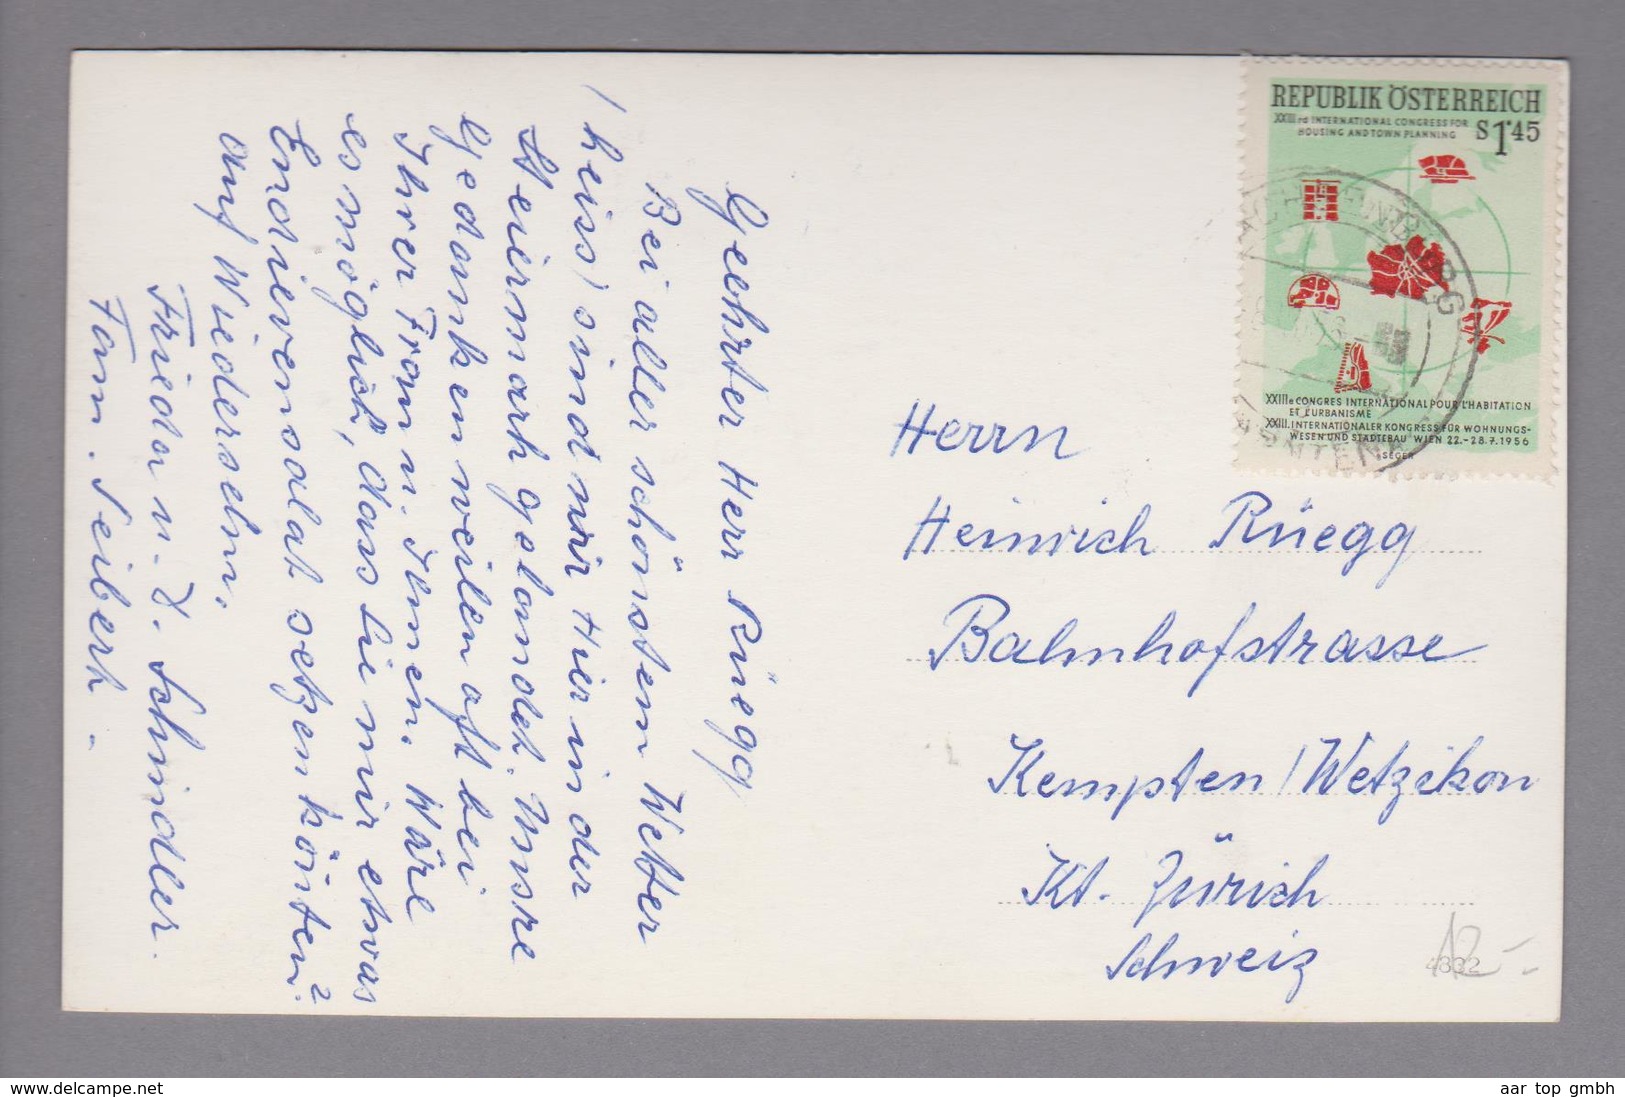 Geehrter Herr Rüegg
Bei aller schönstem Wetter
(heiss) sind wir hier in der
Steiermark gelandet. Unsre
Gedanken weilen oft bei
Ihrer Frau u. Ihnen. Wäre
es möglich, dass Sie mir etwas
Endieven salat setzen könten?
auf Wiedersehn.
Frieda u. Schindler.
Fam. Seiberh.
REPUBLIK ÖSTERREICH
XXIIIrd INTERNATIONAL CONGRESS FOR
HOUSING AND TOWN PLANNING
S 1·45
XXIIIe CONGRES INTERNATIONAL POUR L'HABITATION
ET L'URBANISME
XXIII. INTERNATIONALER KONGRESS FÜR WOHNUNGS-
WESEN UND STÄDTEBAU WIEN 22.-28.7.1956
SEGER
Herrn
Heinrich Rüegg
Bahnhofstrasse
Kempten/Wetzikon
Kt. Zürich
Schweiz
12.-
www.delcampe.net
aar top gmbh